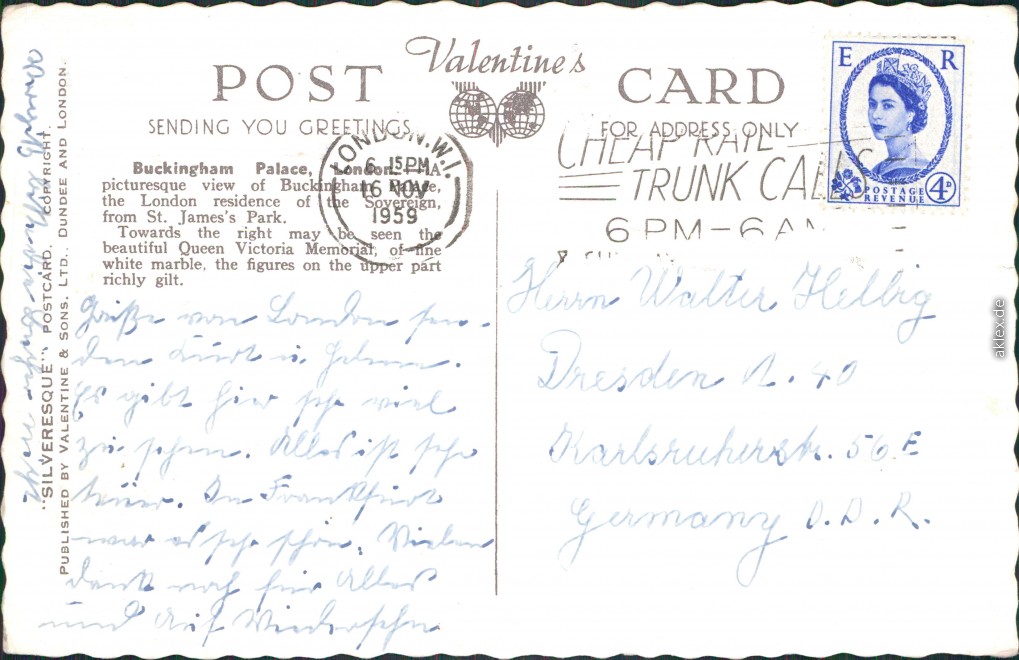 Valentine's
POST CARD
SENDING YOU GREETINGS
FOR ADDRESS ONLY
Buckingham Palace, London.—A
picturesque view of Buckingham Palace,
the London residence of the Sovereign,
from St. James's Park.
Towards the right may be seen the
beautiful Queen Victoria Memorial, of fine
white marble, the figures on the upper part
richly gilt.
Grüße von London sen-
den Kurt u.
Es gibt hier sehr viel
zu sehen. Alles ist sehr
teuer. In Frankfurt
war es sehr schön. Vielen
Dank noch für Alles
und Auf Wiedersehn
"SILVERESQUE" POSTCARD. COPYRIGHT.
PUBLISHED BY VALENTINE & SONS. LTD., DUNDEE AND LONDON.
LONDON.W.1.
6. 15 PM
16 NOV
1959
CHEAP RATE
TRUNK CALLS
6 PM-6 AM
E R
POSTAGE
REVENUE
4D
Herrn Walter Hellbig
Dresden A. 40
Karlsruherstr. 56 E
Germany D. D. R.
aklex.de